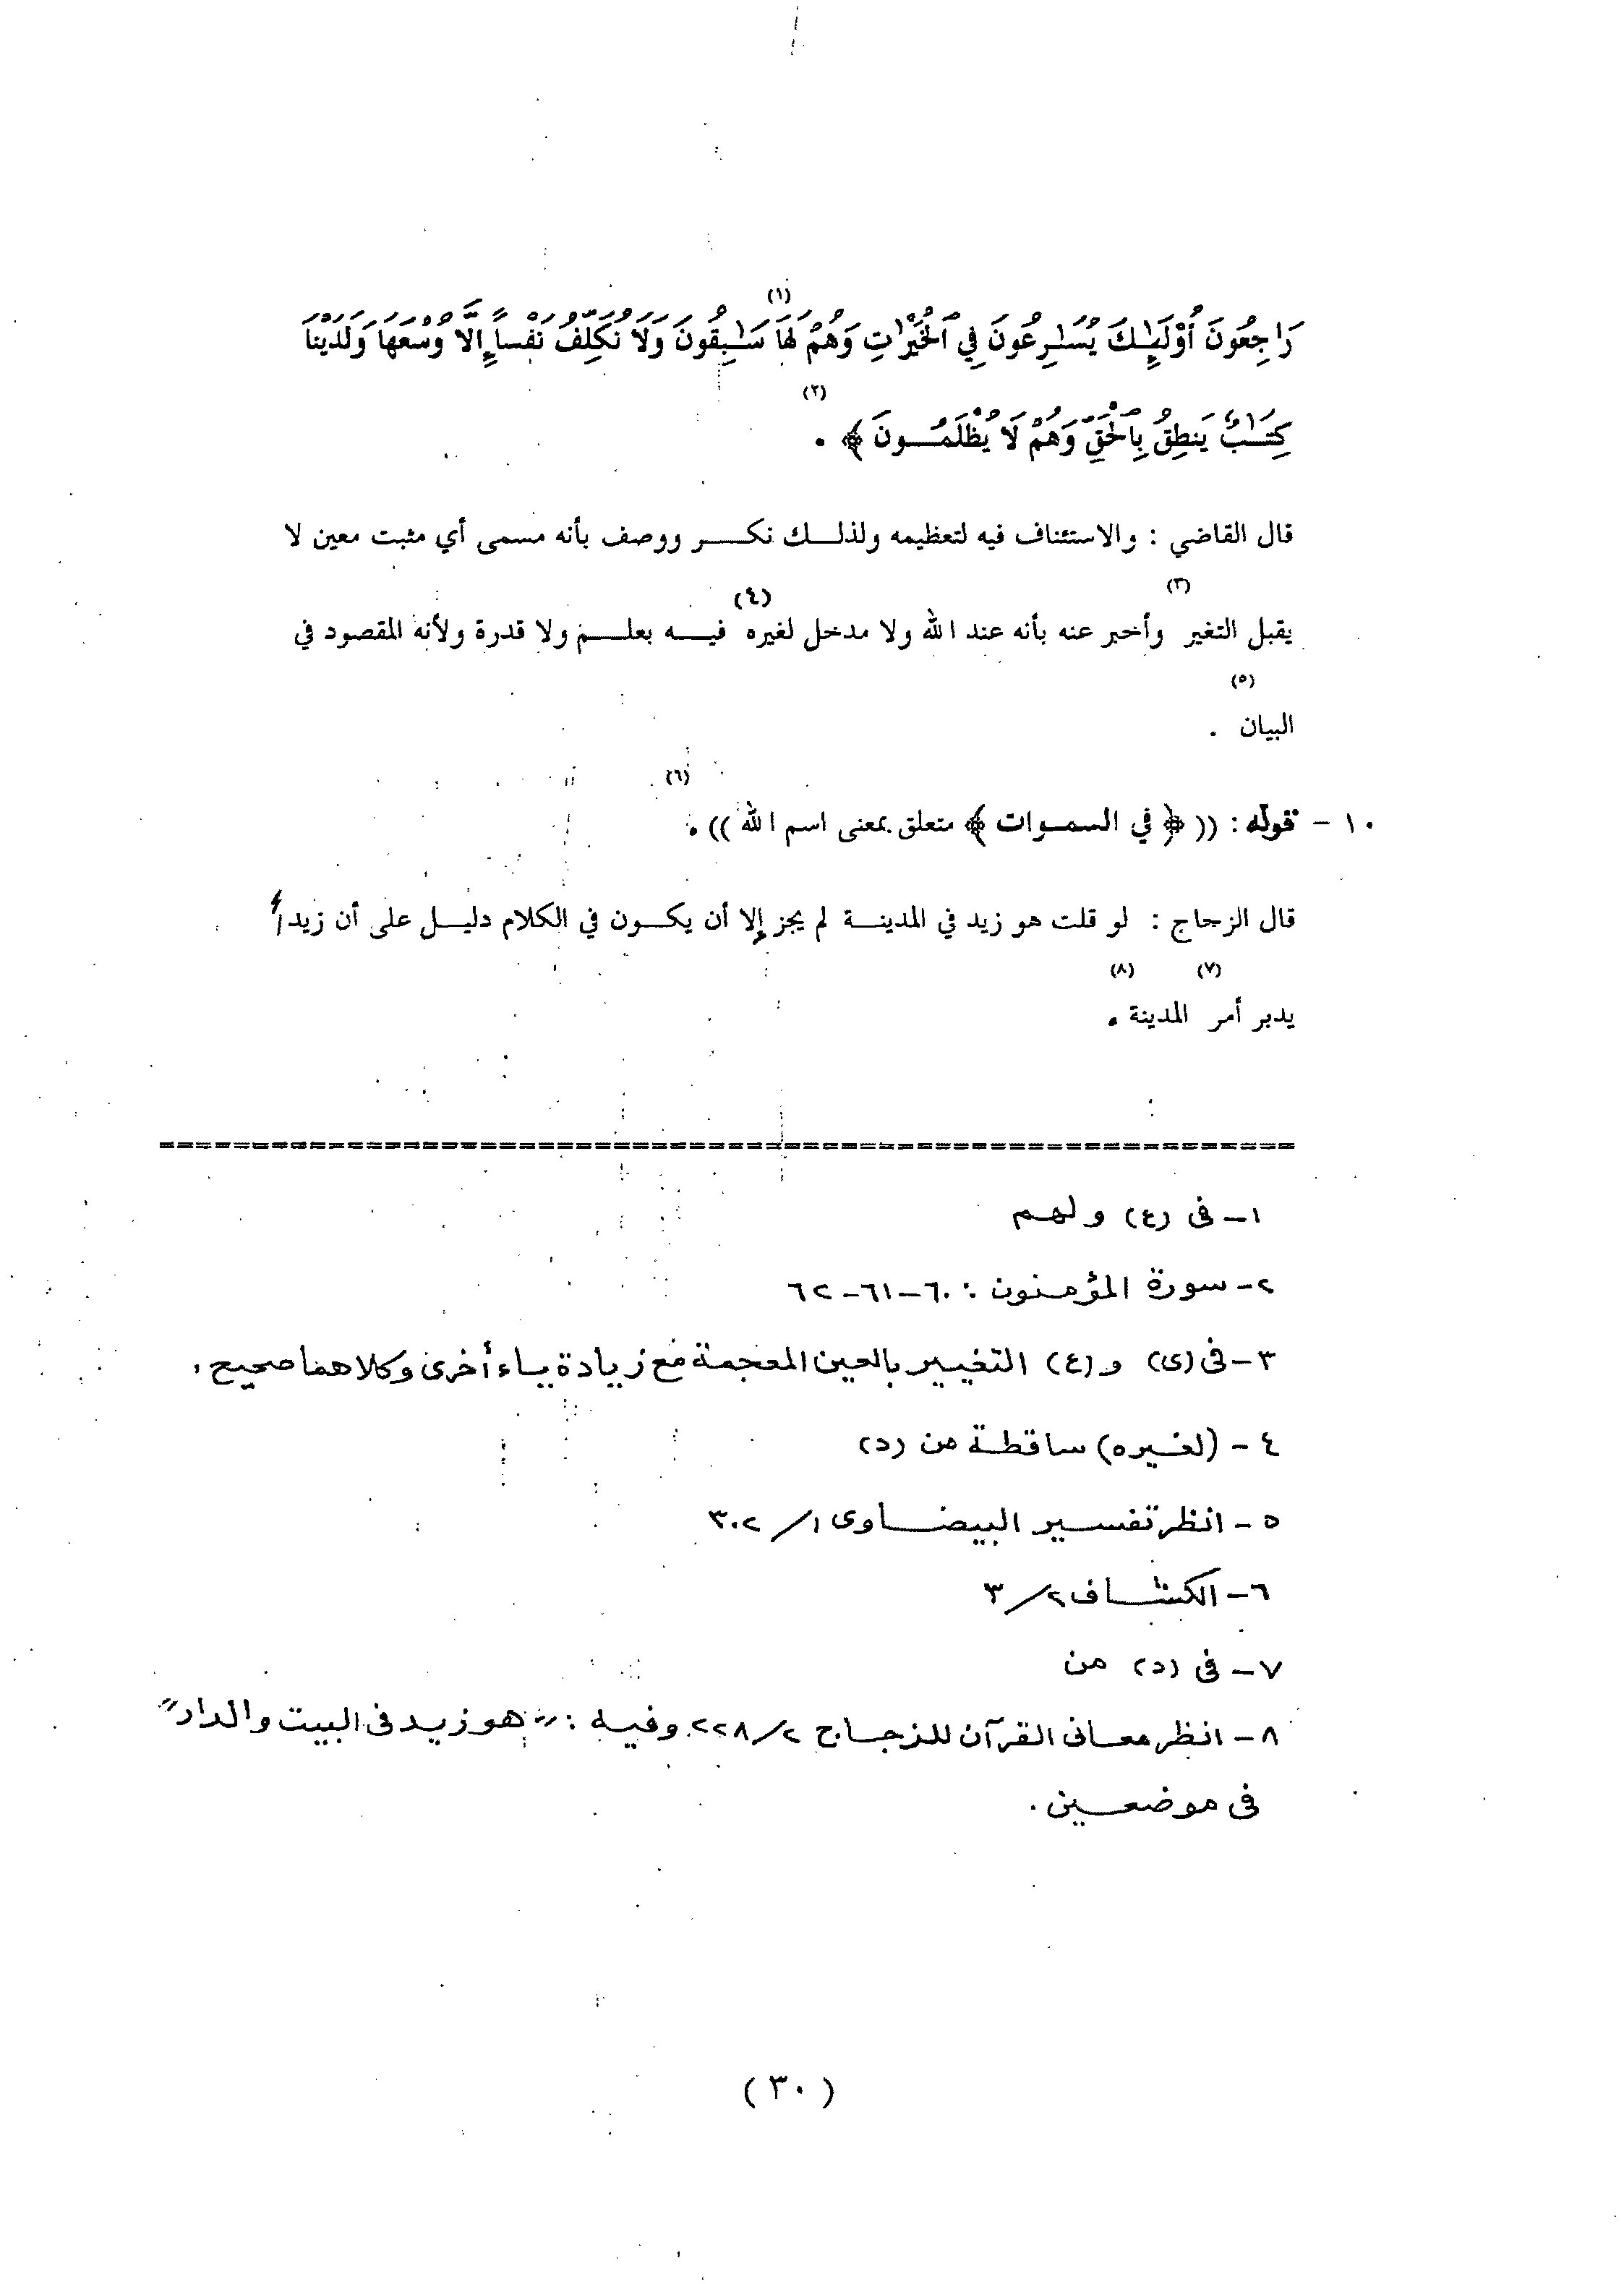 رَاجِعُونَ أُوْلَٰٓئِكَ يُسَٰرِعُونَ فِي ٱلْخَيْرَٰتِ وَهُمْ لَهَا(١) سَٰبِقُونَ وَلَا نُكَلِّفُ نَفْساً إِلَّا وُسْعَهَا وَلَدَيْنَا
كِتَٰبٌ يَنطِقُ بِٱلْحَقِّ وَهُمْ لَا يُظْلَمُونَ ﴾(٢) .
قال القاضي : والاستئناف فيه لتعظيمه ولذلك نكر ووصف بأنه مسمى أي مثبت معين لا
يقبل التغير(٣) وأخبر عنه بأنه عند الله ولا مدخل لغيره(٤) فيه بعلم ولا قدرة ولأنه المقصود في
البيان(٥) .
١٠ - قوله : (( ﴿ في السموات ﴾ متعلق بمعنى اسم الله ))(٦) .
قال الزجاج : لو قلت هو زيد في المدينة لم يجز إلا أن يكون في الكلام دليل على أن زيداً
يدبر أمر(٧) المدينة(٨) .
١- فى (ع) ولهم
٢- سورة المؤمنون : ٦٠-٦١-٦٢
٣- فى (ى) و (ع) التغيير بالغين المعجمة مع زيادة ياء أخرى وكلاهما صحيح .
٤- (لغيره) ساقطة من (د)
٥- انظر تفسير البيضاوى ١/٣٠٢
٦- الكشاف ٢/٣
٧- فى (د) من
٨- انظر معانى القرآن للزجاج ٢/٢٢٨ وفيه : " هو زيد فى البيت والدار "
فى موضعين .
( ٣٠ )